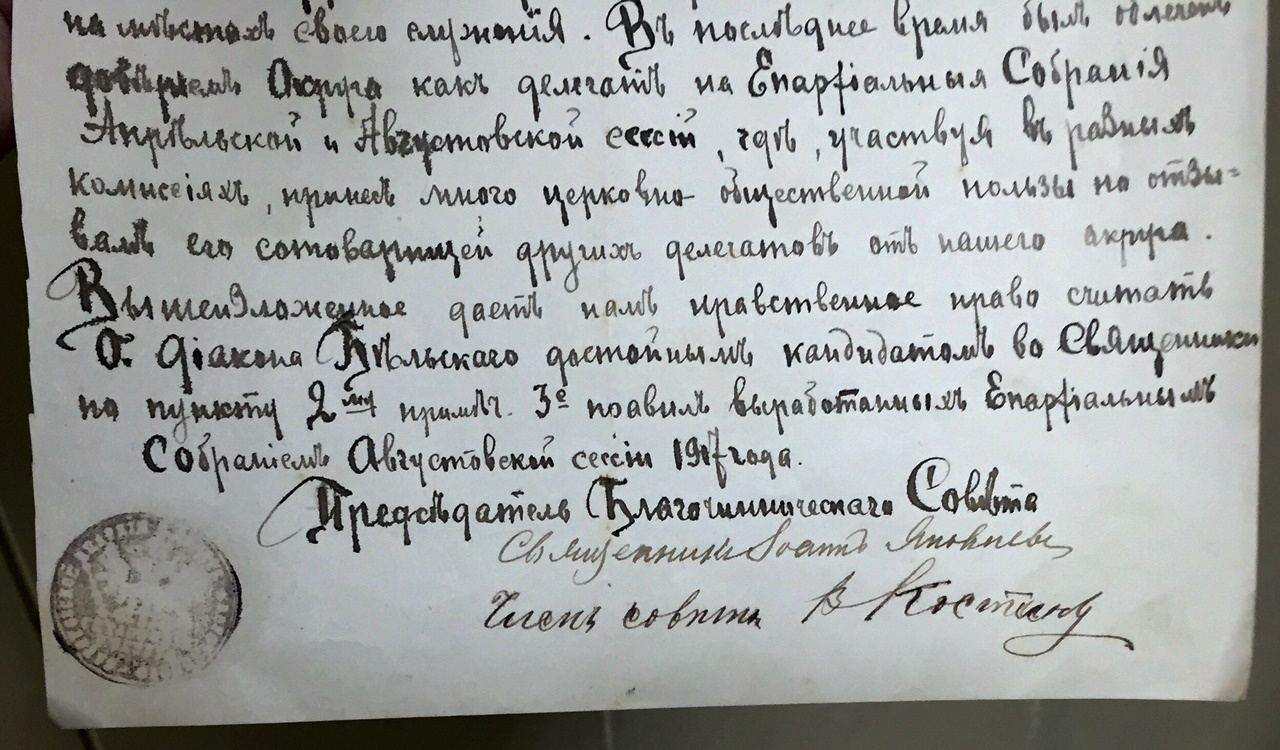 на мѣстахъ своего служенія. Въ послѣднее время былъ облеченъ
довѣріемъ Округа какъ делегатъ на Епархіальныя Собранія
Апрѣльской и Августовской сессій, гдѣ, участвуя въ разныхъ
комиссіяхъ, принесъ много церковно-общественной пользы по отзы=
вамъ его сотоварищей другихъ делегатовъ отъ нашего округа.
Вышеизложенное даетъ намъ нравственное право считать
О. Діакона Бѣльскаго достойнымъ кандидатомъ во Священники
по пункту 2му примѣч. 3е правилъ выработанныхъ Епархіальнымъ
Собраніемъ Августовской сессіи 1917 года.
Предсѣдатель Благочинническаго Совѣта
Священникъ Іоаннъ Яковлевъ
Членъ совѣта В